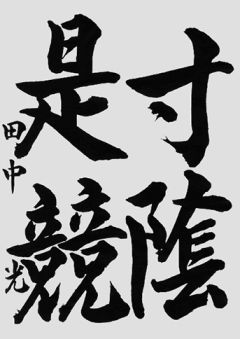 寸陰
是競
田中 光